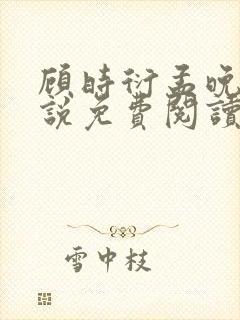 顾時衍孟晚
說免費閱讀
雪中枝